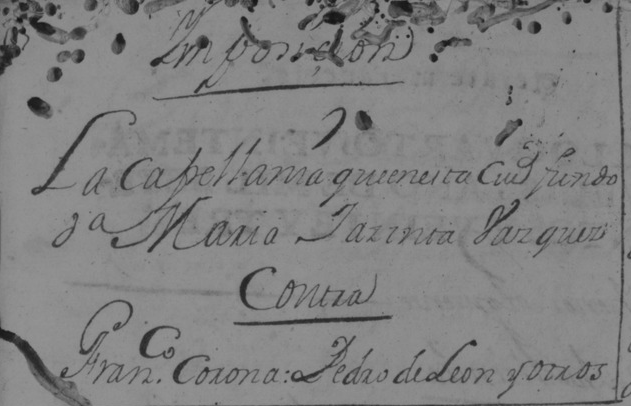 Imposicion
La Capellania que en esta Ciud fundo
Da Maria Jacinta Vazquez
Contra
Franco. Corona: Pedro de Leon y otros